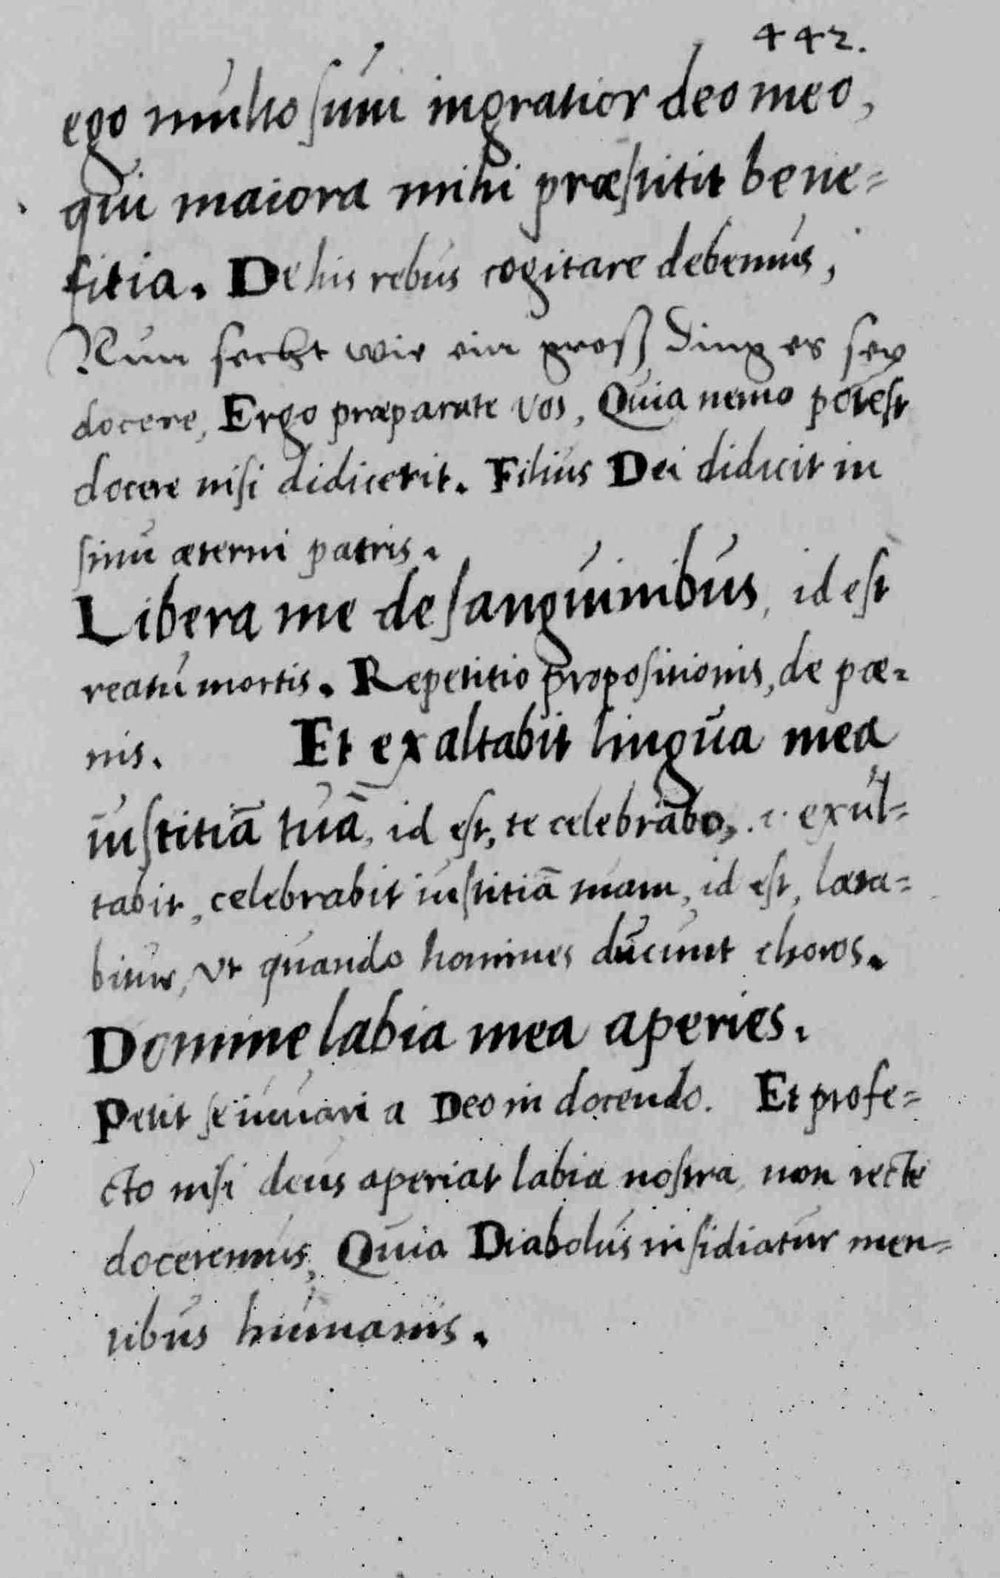 442.
ego multo sum ingratior deo meo,
qui maiora mihi præstitit bene=
fitia. De his rebus cogitare debemus,
Nun secht wie ein groß ding es sey
docere, Ergo præparate vos, Quia nemo potest
docere nisi didicerit. Filius Dei didicit in
sinu æterni patris.
Libera me de sanguinibus, id est
reatu mortis. Repetitio propositionis, de pœ=
nis. Et exaltabit lingua mea
iustitiā tuā, id est, te celebrabo, .i. exul=
tabit, celebrabit iustitiā tuam, id est, læta=
bitur, vt quando homines ducunt choros.
Domine labia mea aperies.
Petit se iuuari a Deo in docendo. Et profe=
cto nisi deus aperiat labia nostra non recte
doceremus, Quia Diabolus insidiatur men=
tibus humanis.